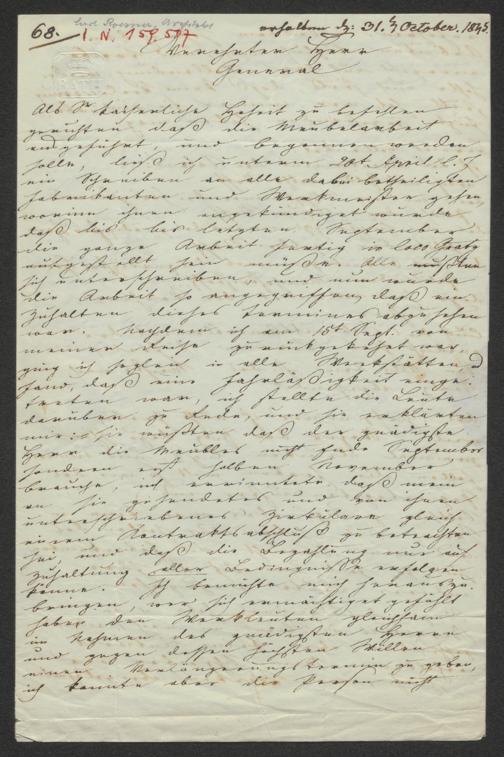 68.
I. N. 159.577
erhalten dz: 31. October. 1845.
Verehrter Herr
General
Als Sr kaiserliche Hoheit zu befehlen
geruhten daß die Meubelarbeit
ausgeführt und begonnen werden
solle, ließ ich unterm 20t April l. J
ein Schreiben an alle dabei betheiligten
Fabrikanten und Werkmeister gehen,
worinn ihnen angekündiget wurde
daß bis letzten September
die ganze Arbeit fertig in loco Gratz
aufgestellt sein müße. Alle mußten
sich unterschreiben, und nun wurde
die Arbeit so angegriffen, daß ein
Zuhalten dieses Termines abzusehen
war. Nachdem ich am 15t Sept. von
meiner Reise zurückgekehrt war,
ging ich sogleich in alle Werkstätten u
fand, daß eine Fahrläßigkeit einge-
treten war, ich stellte die Leute
darüber zu Rede, und sie erklärten
mir: sie wüßten daß der gnädigste
Herr die Meubles nicht Ende September
sondern erst halben November
brauche, ich erinnerte daß mein
an sie gesendetes und von ihnen
unterschriebenes Zirkulare gleich
einem Kontraktsabschluß zu betrachten
sei, und daß die Bezahlung nur auf
Zuhaltung aller Bedingnisse erfolgen
könne. Ich bemühte mich herauszu-
bringen, wer sich ermächtiget gefühlt
habe den Werkleuten gleichsam
im Nahmen des gnädigsten Herrn
und gegen dessen höchsten Willen
einen Verlängerungstermin zu geben,
ich konnte aber die Person nicht